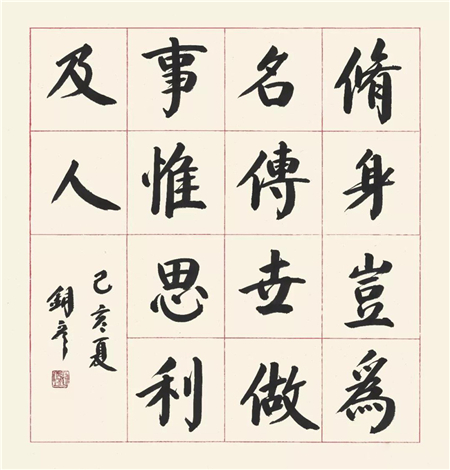 脩身豈為
名傳世做
事惟思利
及人
己亥夏